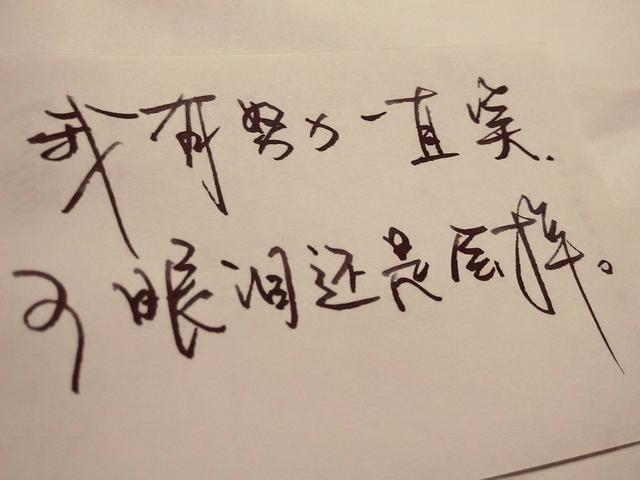 我有努力一直笑、
可眼泪还是会掉。